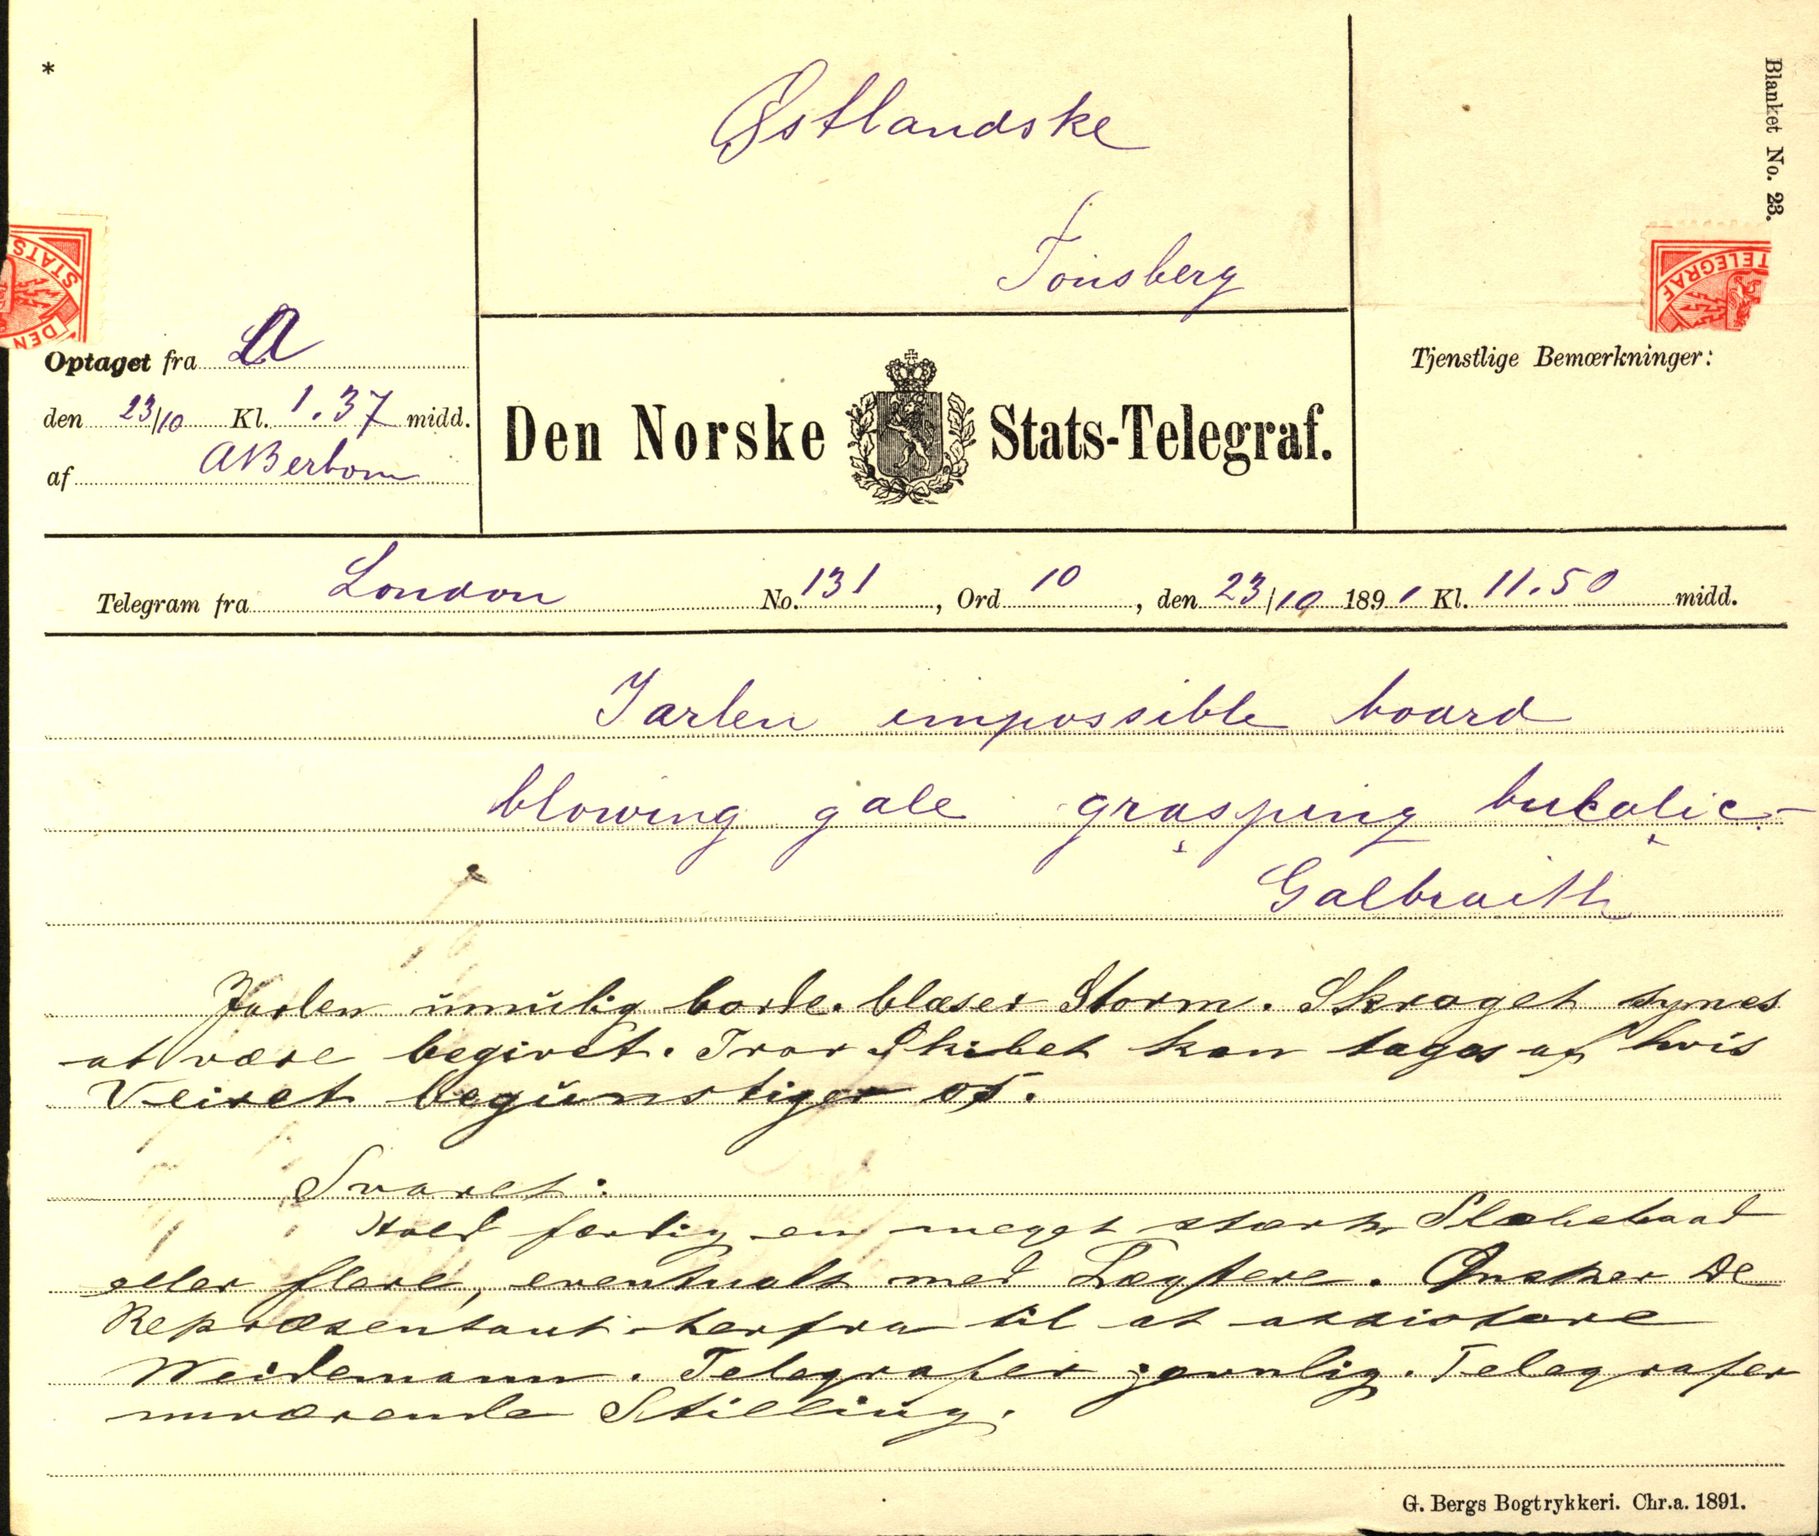 *
Blanket No. 23.
Østlandske
Tönsberg
STATS
DEN
TELEGRAF
Optaget fra LA
den 23/10 Kl. 1.37 midd.
af ABerbom
Den Norske Stats-Telegraf.
Tjenstlige Bemærkninger:
Telegram fra London No. 131, Ord 10, den 23/10 1891 Kl. 11.50 midd.
Jarlen impossible board
blowing gale grasping bucolic
Galbraith
Jarlen umulig borde. blæser Storm. Skroget synes
at være begivet. Tror Skibet kan tages af hvis
Veiret begunstiger os.
Svaret:
Hold færdig en meget stærk Slæbebaad
eller flere, eventuelt med Lægtere. Ønsker De
Repræsentant herfra til at assistere
Weidemann. Telegrafer jevnlig. Telegrafer
nuværende Stilling.
G. Bergs Bogtrykkeri. Chr.a. 1891.